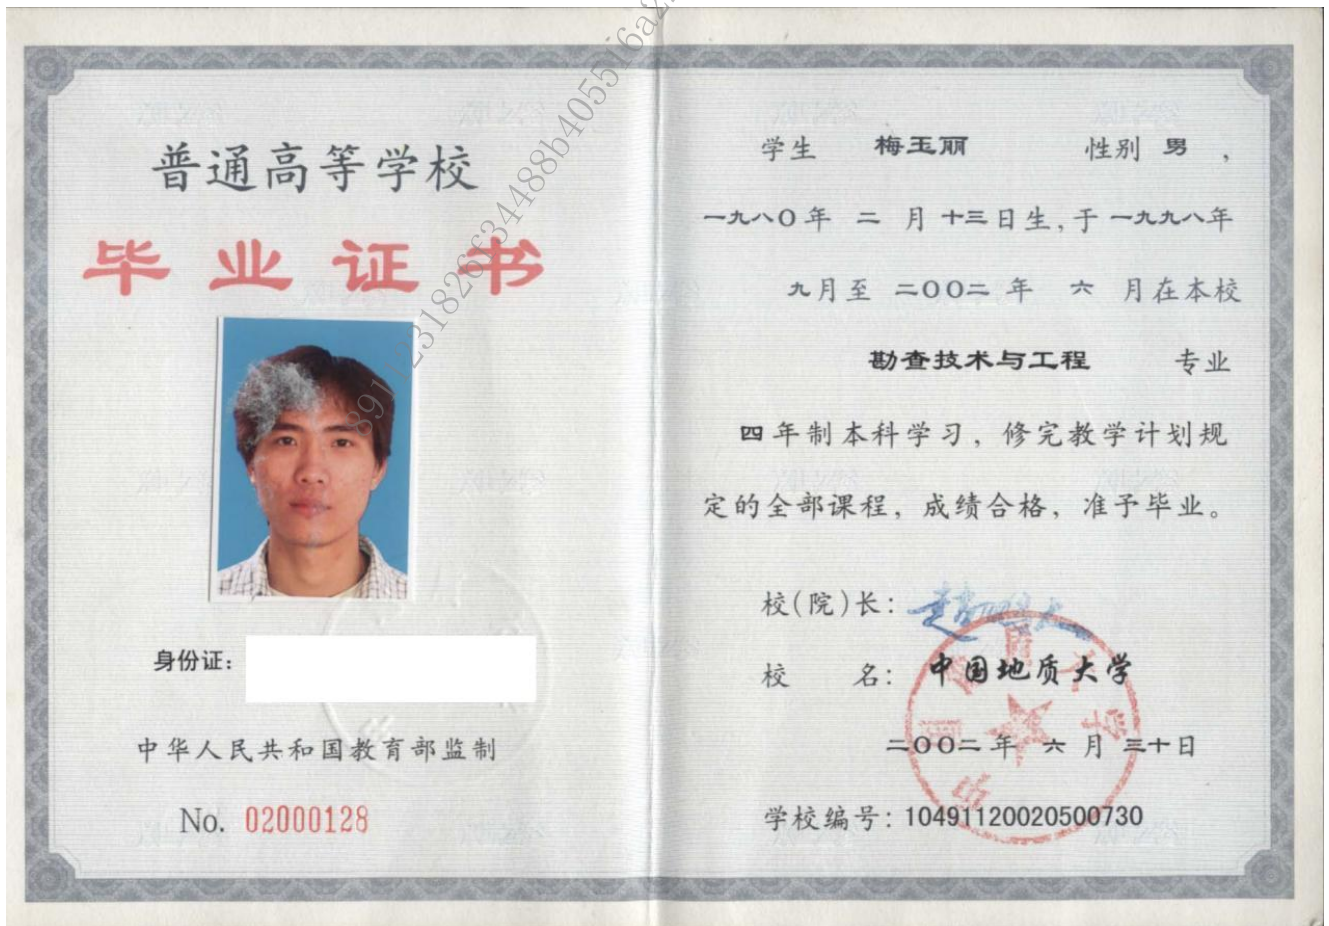 普通高等学校
毕业证书
身份证：
中华人民共和国教育部监制
No. 02000128
学生 梅玉丽 性别 男，
一九八〇年 二 月 十三日生，于 一九九八年
九月至 二〇〇二 年 六 月在本校
勘查技术与工程 专业
四年制本科学习，修完教学计划规
定的全部课程，成绩合格，准予毕业。
校(院)长：
校 名：中国地质大学
二〇〇二年 六 月 三十日
学校编号：10491120020500730